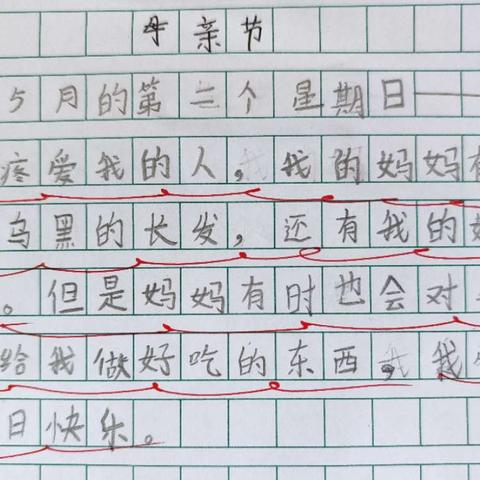 母亲节
5月的第二个星期日——
疼爱我的人,我的妈妈有
乌黑的长发,还有我的
。但是妈妈有时也会对
给我做好吃的东西,我
日快乐。